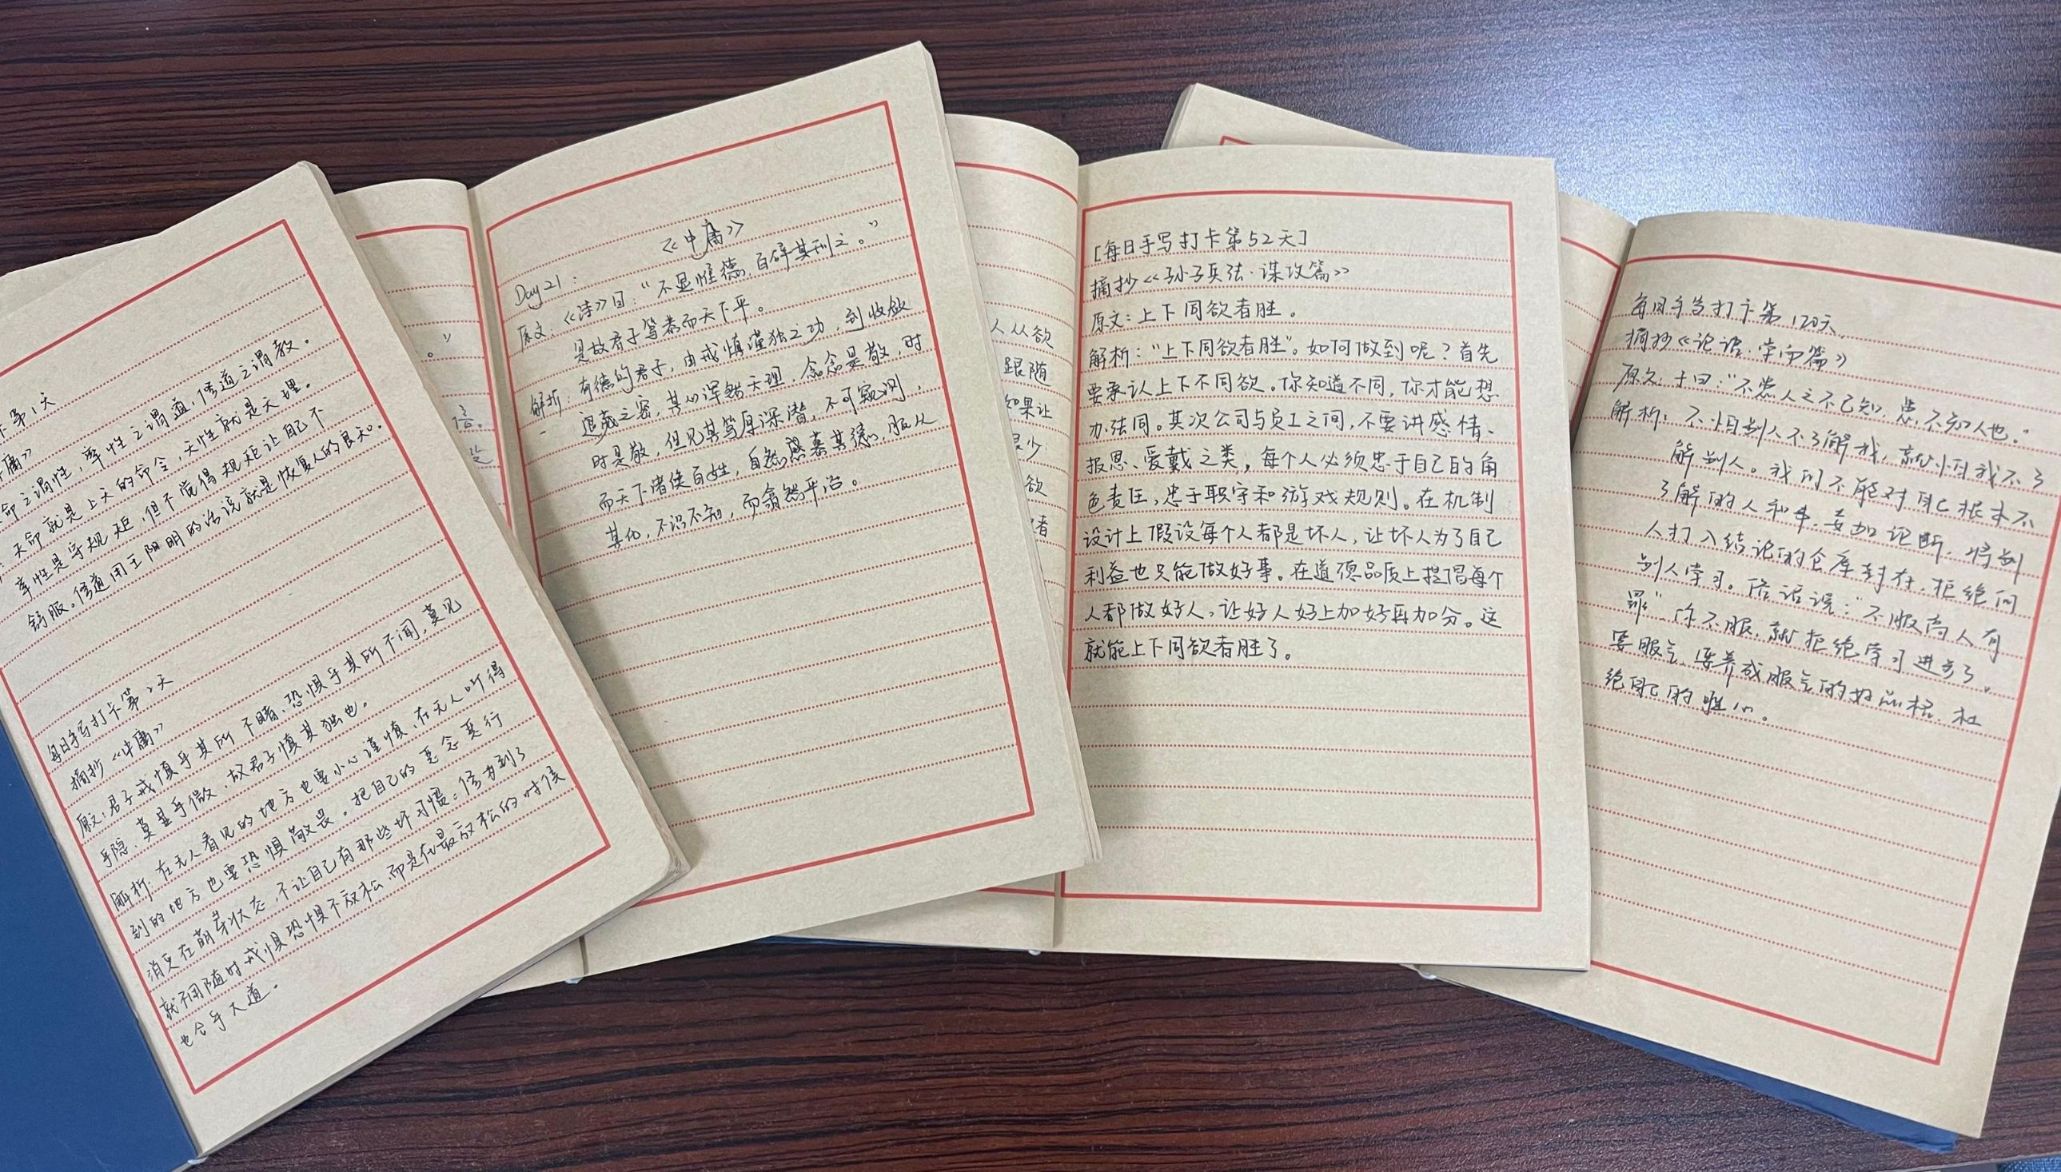 卡第1天
庸》
命之谓性，率性之谓道，修道之谓教。
天命就是上天的命令，天性就是天理。
率性是守规矩，但不觉得规矩让自己不
舒服。修道用王阳明的话说就是恢复人的良知。
每日手写打卡第2天
摘抄《中庸》
原文：君子戒慎乎其所不睹，恐惧乎其所不闻，莫见
乎隐，莫显乎微，故君子慎其独也。
解析：在无人看见的地方也要小心谨慎，在无人听得
到的地方也要恐惧敬畏。把自己的恶念恶行
消灭在萌芽状态，不让自己有那些坏习惯。修为到了
就不用随时戒慎恐惧不放松，而是在最放松的时候
也合乎大道。
。”
Day21：《中庸》
原文：《诗》曰：“不显惟德，百辟其刑之。”
是故君子笃恭而天下平。
解析：有德的君子，由戒慎谨独之功，到收敛
退藏之密，其心浑然天理，念念是敬，时
时是敬，但见其笃厚深潜，不可窥测，
而天下诸侯百姓，自然感慕其德，服从
其化，不识不知，而翕然平治。
人从欲
跟随
如果让
很少
欲
者
[每日手写打卡第52天]
摘抄《孙子兵法·谋攻篇》
原文：上下同欲者胜。
解析：“上下同欲者胜”。如何做到呢？首先
要承认上下不同欲。你知道不同，你才能想
办法同。其次公司与员工之间，不要讲感情、
报恩、爱戴之类，每个人必须忠于自己的角
色责任，忠于职守和游戏规则。在机制
设计上假设每个人都是坏人，让坏人为了自己
利益也只能做好事。在道德品质上提倡每个
人都做好人，让好人好上加好再加分。这
就能上下同欲者胜了。
每日手写打卡第120天
摘抄《论语·学而篇》
原文：子曰：“不患人之不己知，患不知人也。”
解析：不怕别人不了解我，就怕我不了
解别人。我们不能对自己根本不
了解的人和事，妄加论断，将别
人打入结论的仓库封存，拒绝向
别人学习。俗话说：“不服高人有
罪”你不服，就拒绝学习进步了。
要服气，培养成服气的好品格，杜
绝自己的雄心。